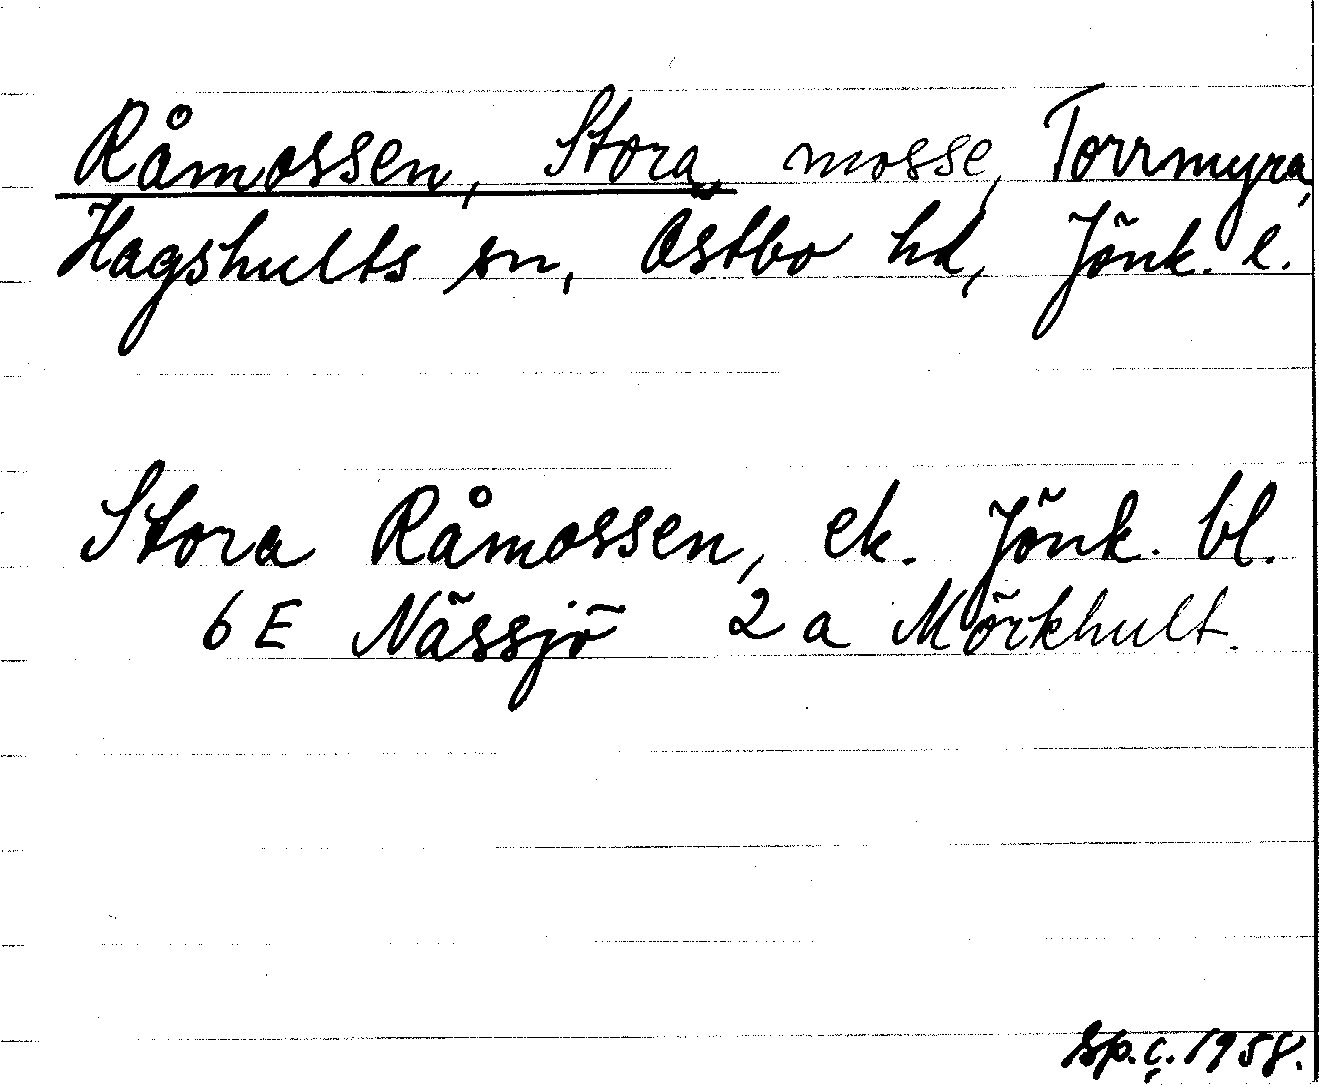 Råmossen, Stora, mosse, Torrmyra,
Hagshults sn, Östbo hd, Jönk. l.
Stora Råmossen, ek. Jönk. bl.
6 E Nässjö 2 a Mörkhult.
sp. c. 1958.